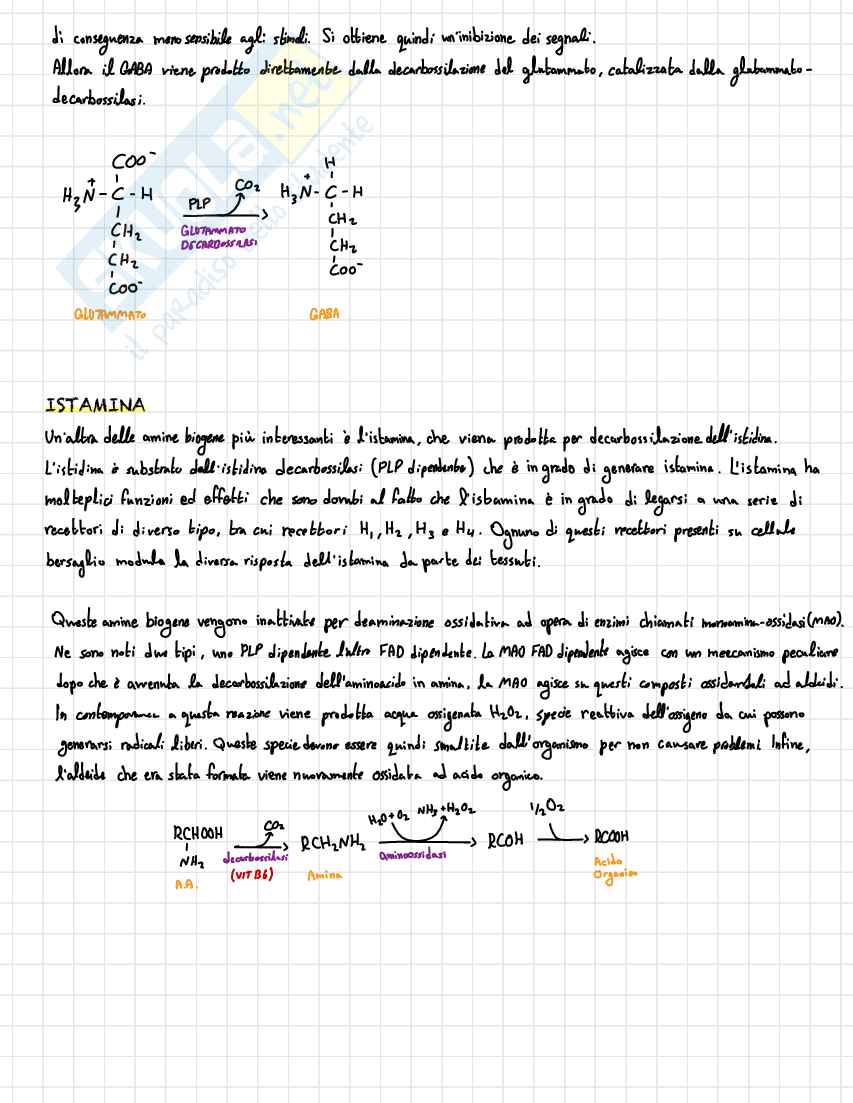 di conseguenza meno sensibile agli stimoli. Si ottiene quindi un'inibizione dei segnali.
Allora il GABA viene prodotto direttamente dalla decarbossilazione del glutammato, catalizzata dalla glutammato-
decarbossilasi.
COO⁻ H
H₃N⁺ - C - H PLP CO₂ H₃N⁺ - C - H
CH₂ GLUTAMMATO CH₂
DECARBOSSILASI
CH₂ CH₂
COO⁻ COO⁻
GLUTAMMATO GABA
SKUOLA.net
il paradiso dello studente
ISTAMINA
Un'altra delle amine biogene più interessanti è l'istamina, che viene prodotta per decarbossilazione dell'istidina.
L'istidina è substrato dell'istidina decarbossilasi (PLP dipendente) che è in grado di generare istamina. L'istamina ha
molteplici funzioni ed effetti che sono dovuti al fatto che l'istamina è in grado di legarsi a una serie di
recettori di diverso tipo, tra cui recettori H₁, H₂, H₃ e H₄. Ognuno di questi recettori presenti su cellule
bersaglio modula la diversa risposta dell'istamina da parte dei tessuti.
Queste amine biogene vengono inattivate per deaminazione ossidativa ad opera di enzimi chiamati monoamina-ossidasi (MAO).
Ne sono noti due tipi, uno PLP dipendente l'altro FAD dipendente. La MAO FAD dipendente agisce con un meccanismo peculiare
dopo che è avvenuta la decarbossilazione dell'aminoacido in amina, la MAO agisce su questi composti ossidandoli ad aldeidi.
In contemporanea a questa reazione viene prodotta acqua ossigenata H₂O₂, specie reattiva dell'ossigeno da cui possono
generarsi radicali liberi. Queste specie devono essere quindi smaltite dall'organismo per non causare problemi. Infine,
l'aldeide che era stata formata viene nuovamente ossidata ad acido organico.
RCHOOH CO₂ RCH₂NH₂ H₂O+O₂ NH₃+H₂O₂ RCOH ½O₂ RCOOH
NH₂ decarbossilasi aminoossidasi Acido
A.A. (VIT B6) Amina Organico